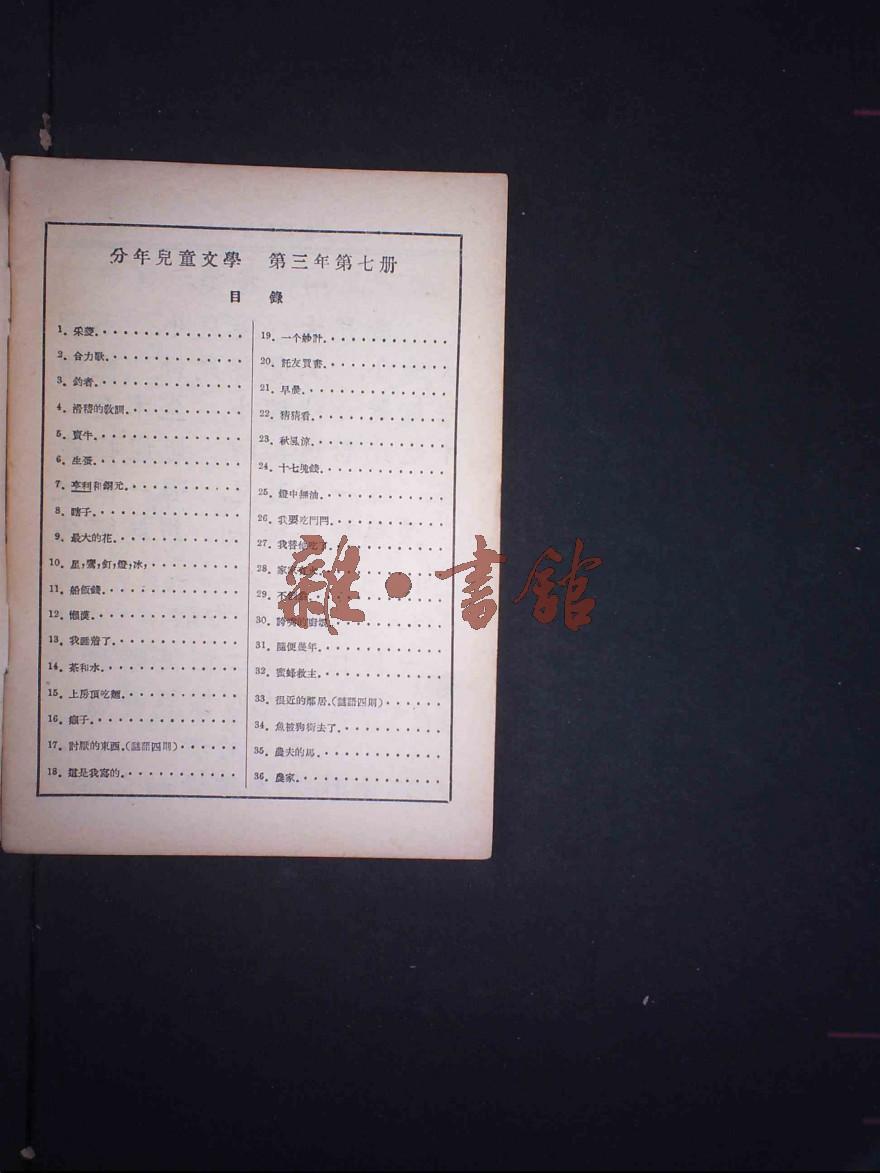 分年兒童文學　第三年第七册
目　錄
1. 采菱
2. 合力歌
3. 釣者
4. 滑稽的教訓
5. 賣牛
6. 生蛋
7. 亨利和銅元
8. 瞎子
9. 最大的花
10. 星，鷺，釘，燈，冰，
11. 船飯錢
12. 懶漢
13. 我睡着了
14. 茶和水
15. 上房頂吃麵
16. 子
17. 討厭的東西.(謎語四則)
18. 還是我寫的
19. 一个妙計
20. 託友買書
21. 早晨
22. 猜猜看
23. 秋風涼
24. 十七塊錢
25. 燈中無油
26. 我要吃門門
27. 我替他吃了
28. 家家
29. 不
30. 的廚
31. 隨便幾年
32. 蜜蜂救主
33. 很近的鄰居.(謎語四則)
34. 魚被狗銜去了
35. 農夫的馬
36. 農家
雜·書館